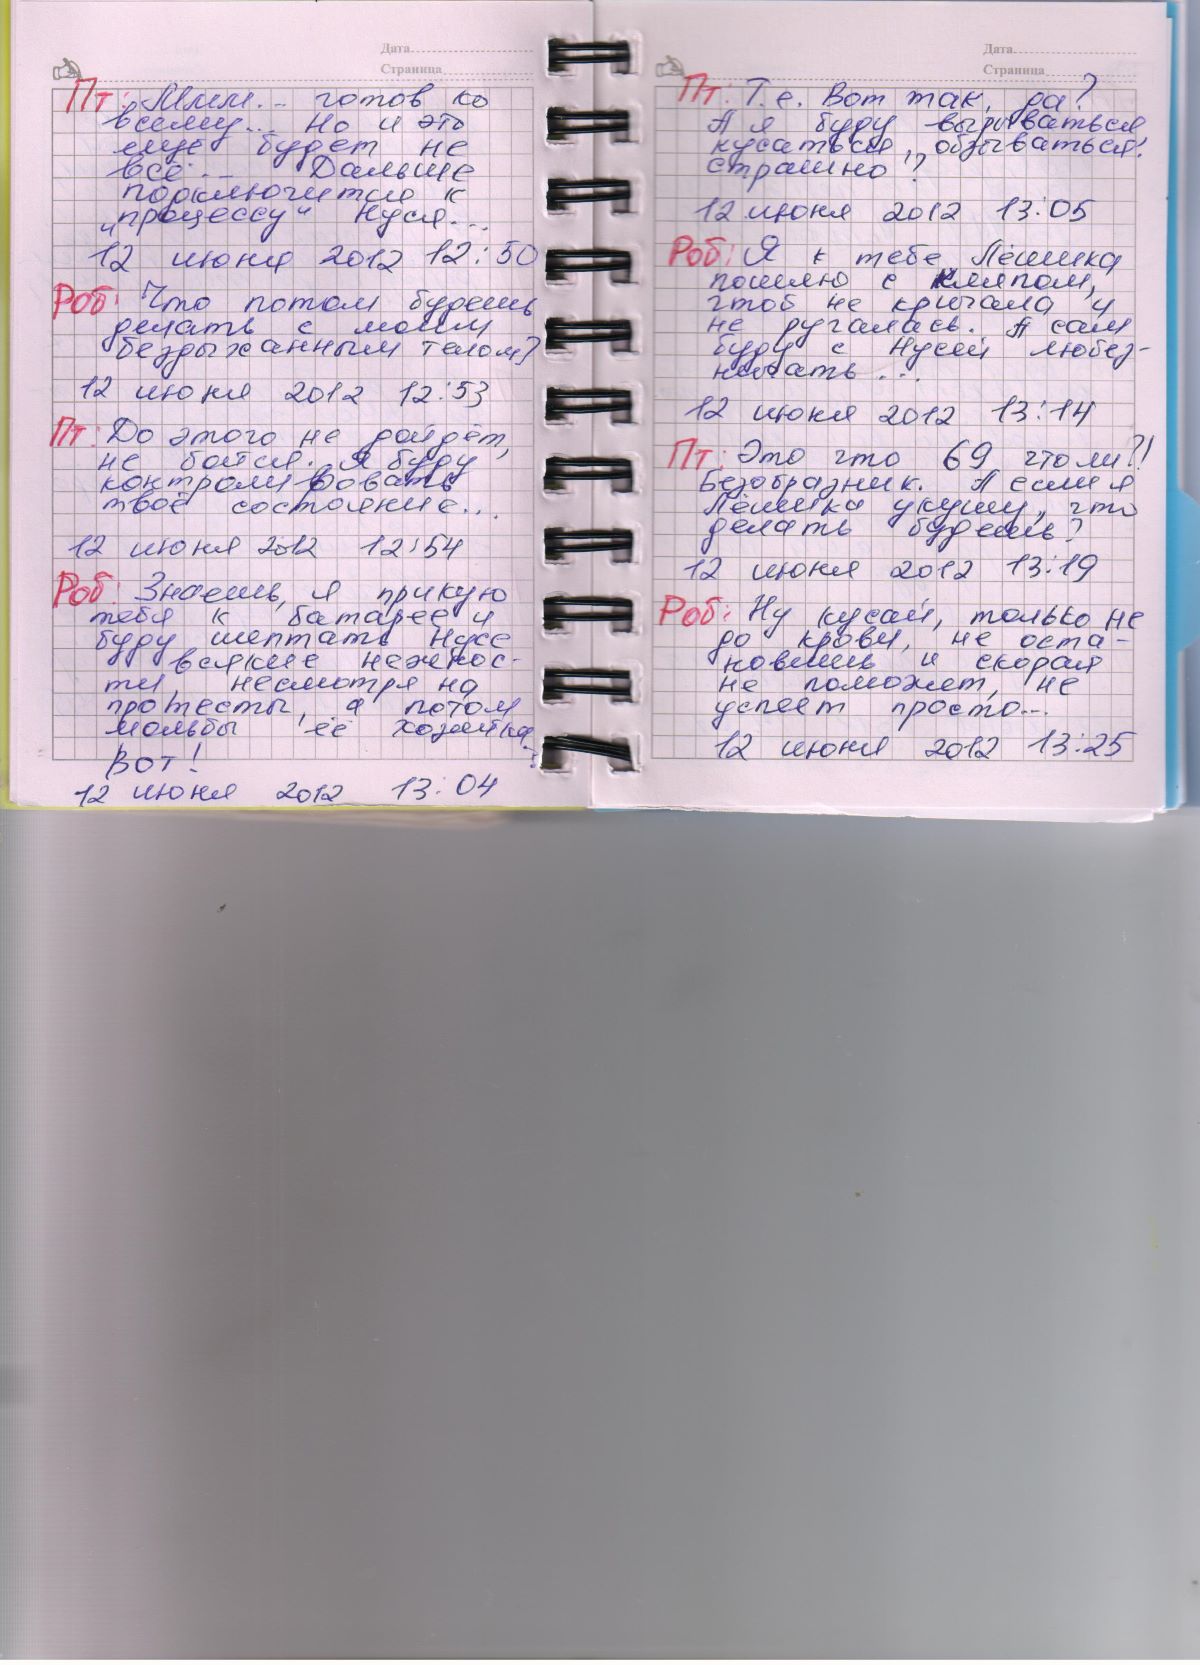 Дата
Страница
Пт: Ммм... готов ко
всему... Но и это
еще будет не
всё... Дальше
подключится к
„процессу“ Нуся...
12 июня 2012 12:50
Роб: Что потом будешь
делать с моим
бездыханным телом?
12 июня 2012 12:53
Пт: До этого не дойдёт,
не бойся. Я буду
контролировать
твоё состояние...
12 июня 2012 12:54
Роб: Знаешь, я прикую
тебя к батарее и
буду шептать Нусе
всякие нежнос-
ти, несмотря на
протесты, а потом
мольбы её хозяйки,
Вот!
12 июня 2012 13:04
Дата
Страница
Пт: Т.е. Вот так, да?
А я буду вырываться,
кусаться, обзываться!
страшно?
12 июня 2012 13:05
Роб: Я к тебе Лёшика
пошлю с кляпом,
чтоб не кричала и
не ругалась. А сам
буду с Нусей любез-
ничать...
12 июня 2012 13:14
Пт: Это что 69 чтоли?!
Безобразник. А если я
Лёшика укушу, что
делать будешь?
12 июня 2012 13:19
Роб: Ну кусай, только не
до крови, не оста-
новишь и скорая
не поможет, не
успеет просто...
12 июня 2012 13:25